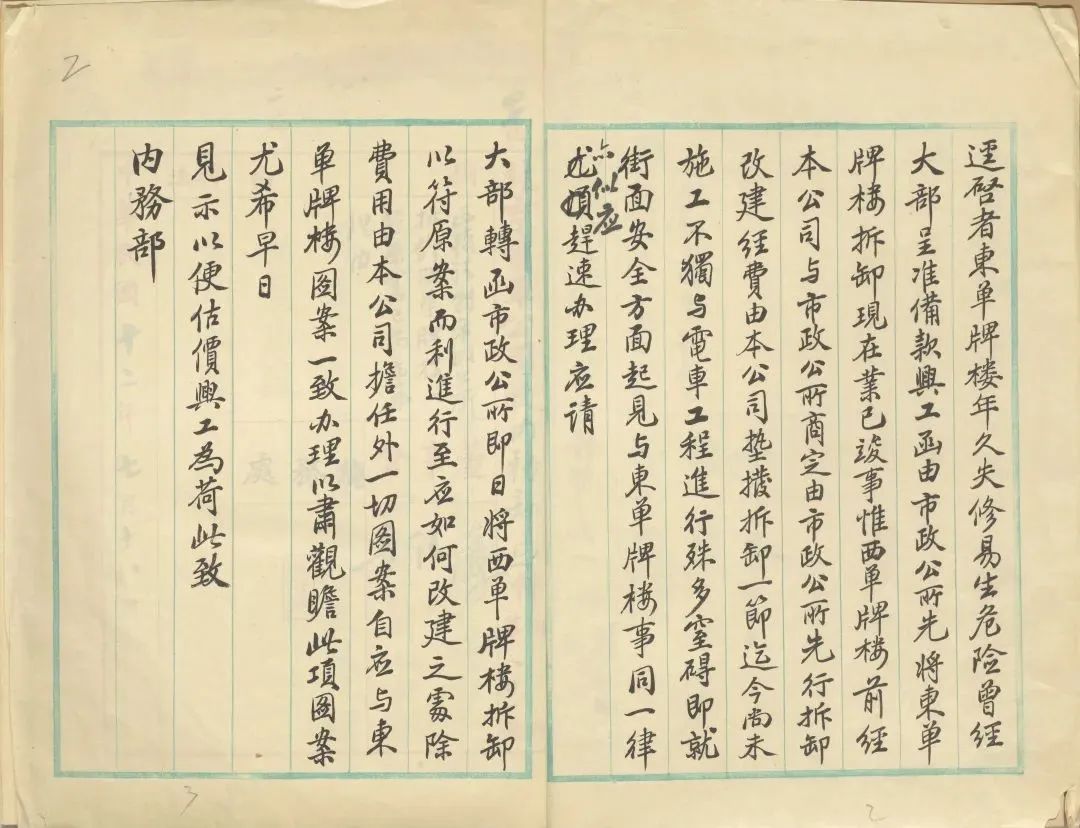 逕啓者東单牌楼年久失修易生危险曾經
大部呈准備款興工函由市政公所先将東单
牌楼拆卸現在業已竣事惟西单牌楼前經
本公司与市政公所商定由市政公所先行拆卸
改建經費由本公司墊撥拆卸一節迄今尚未
施工不獨与電車工程進行殊多窒碍即就
街面安全方面起見与東单牌楼事同一律
似应
尤須趕速办理应請
大部轉函市政公所即日将西单牌楼拆卸
以符原案而利進行至应如何改建之處除
費用由本公司擔任外一切図案自应与東
单牌楼図案一致办理以肅觀瞻此項図案
尤希早日
見示以便估價興工為荷此致
内務部
2
3
2